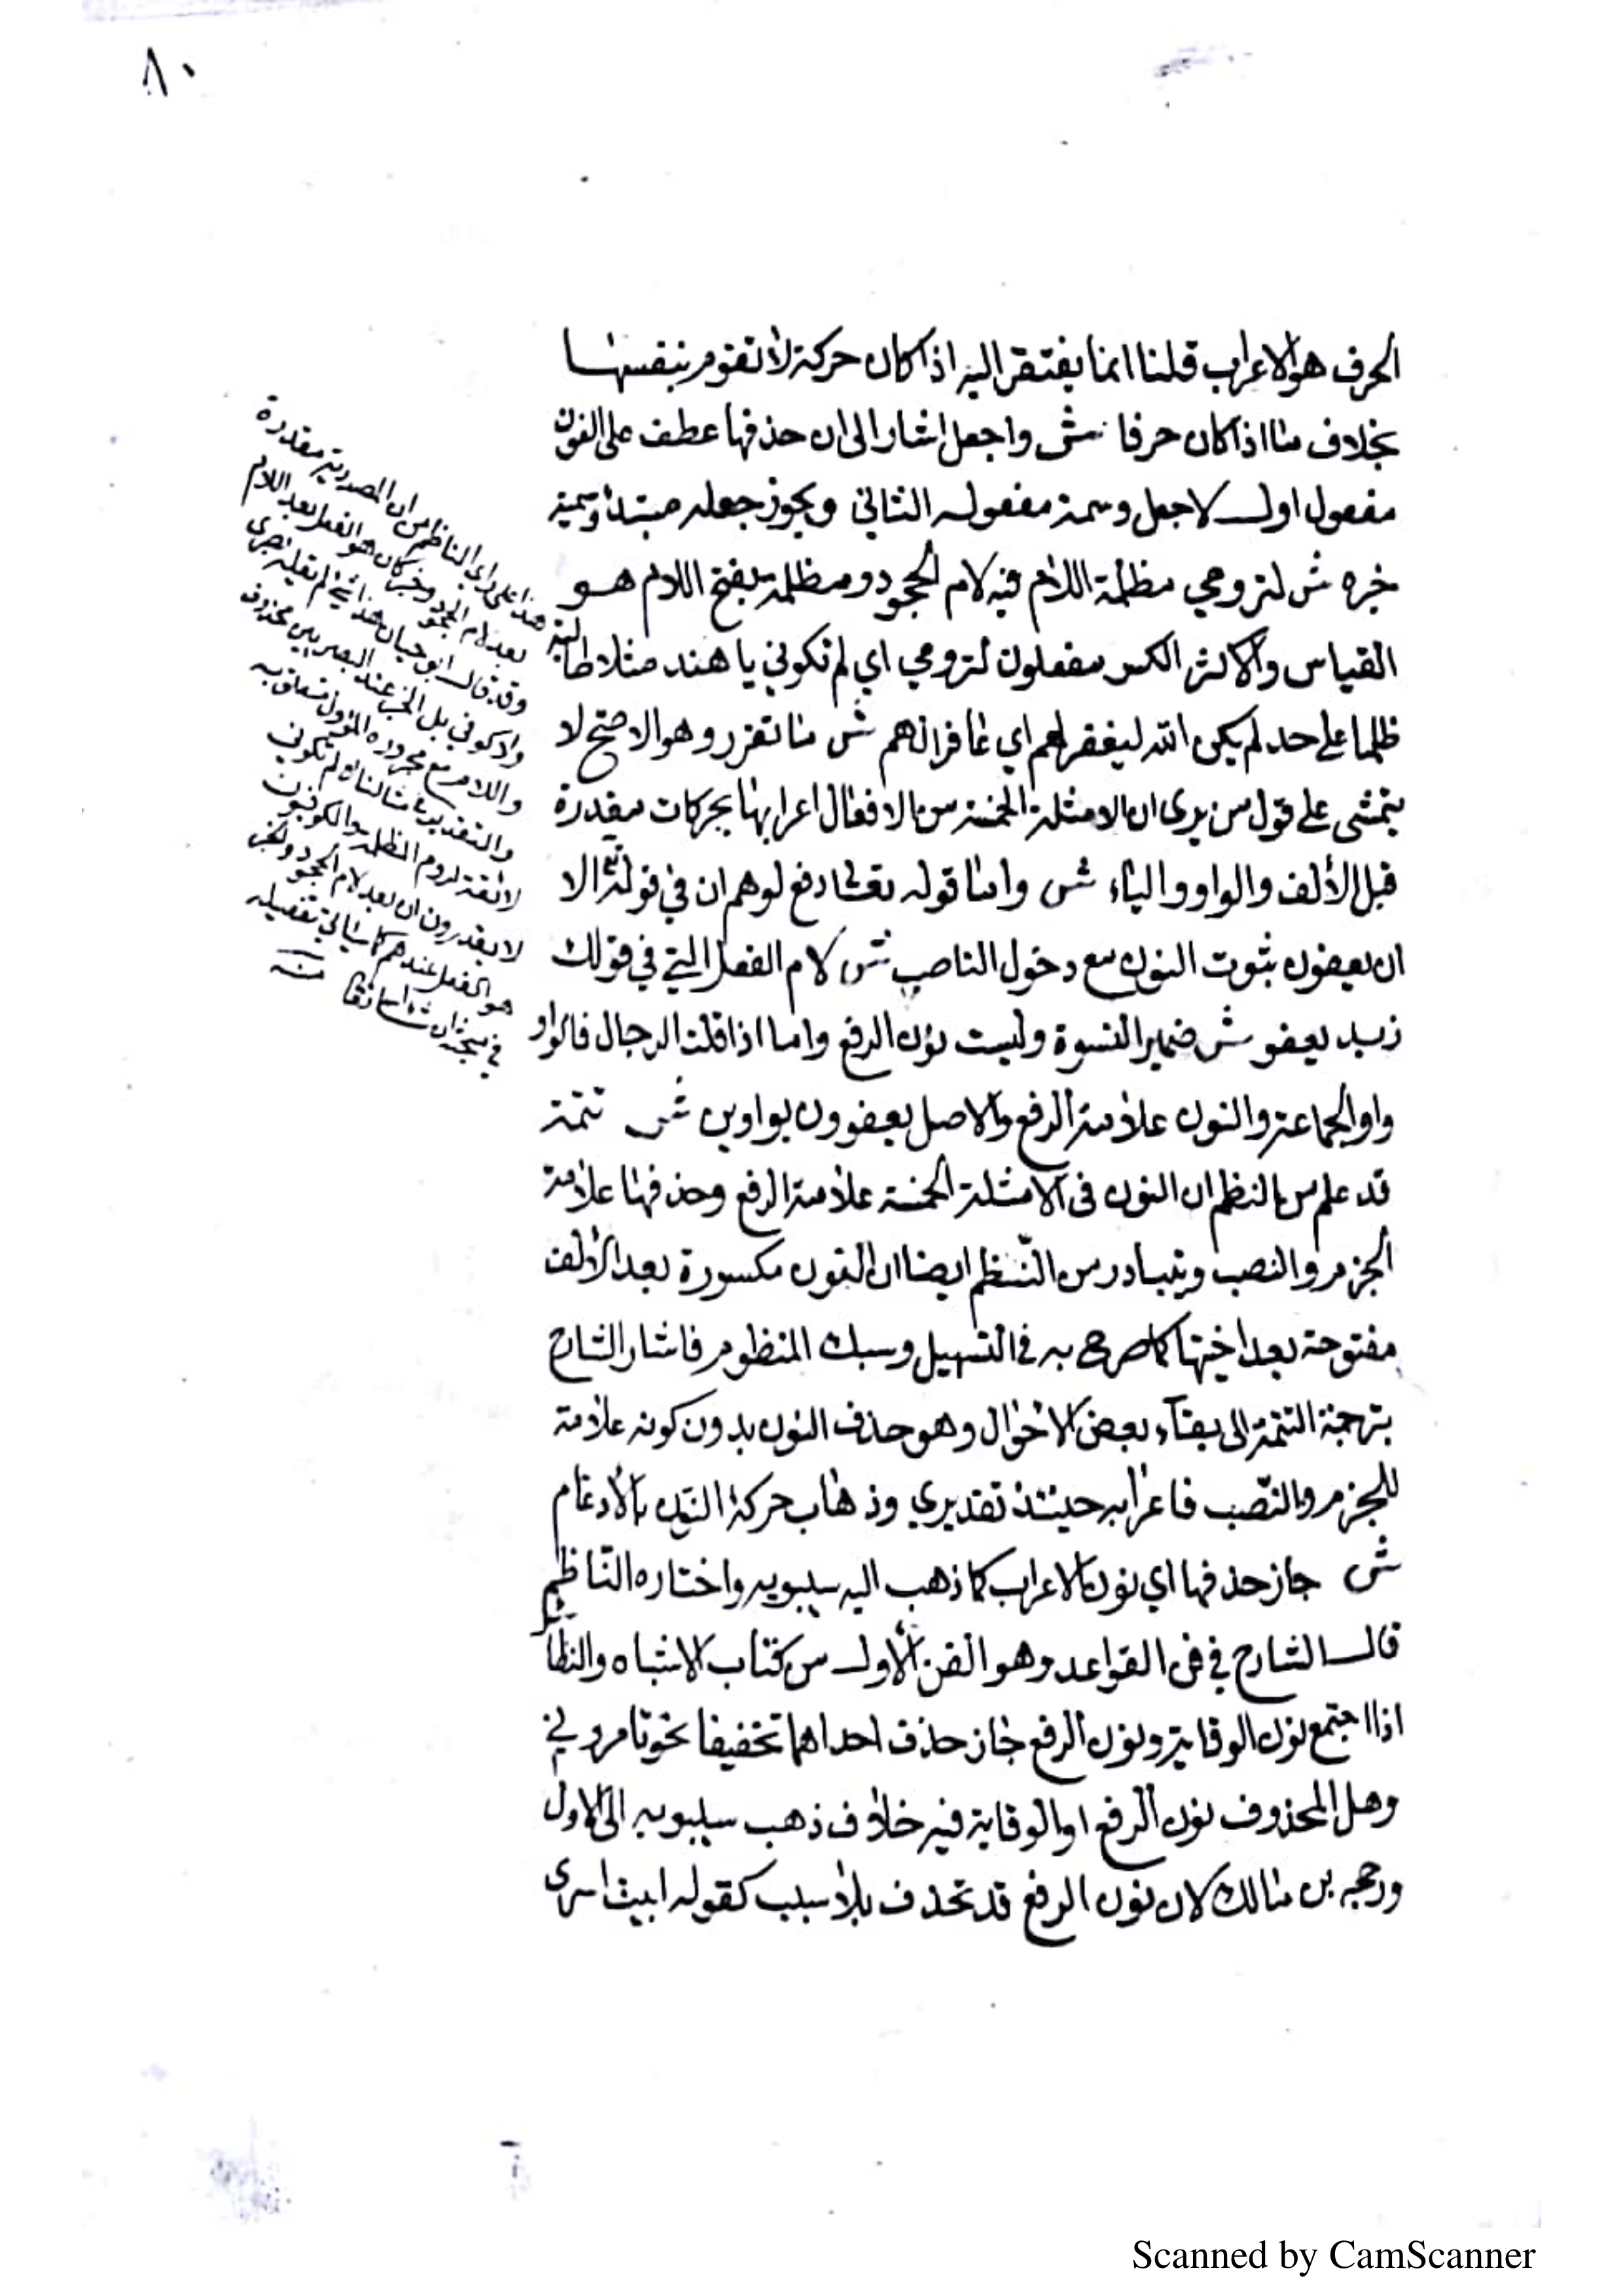 ٨٠
الحرف هو الاعراب قلنا انما يفتقر اليه اذا كان حركة لا تقوم بنفسها
بخلاف ما اذا كان حرفا ش واجعل اشار الى ان حذفها عطف على النون
مفعول اول لاجعل وسمة مفعوله الثاني ويجوز جعله مبتدأ وسمة
خبره ش لترومي مظلمة اللام فيه لام الجحود ومظلمة بفتح اللام هو
القياس والاكثر الكسر مفعلون لترومي اي لم تكوني يا هند مثلا طالبة
ظلما على حد لم يكن الله ليغفر لهم اي غافرا لهم ش ما تقرر وهو الاصح لا
يتمشى على قول من يرى ان الامثلة الخمسة من الافعال اعرابها بحركات مقدرة
قبل الألف والواو والياء ش واما قوله تعالى دفع لوهم ان في قوله الا
ان يعفون ثبوت النون مع دخول الناصب ش لام الفعل التي في قولك
زيد يعفو ش ضمير النسوة وليست نون الرفع واما اذا قلت الرجال فالواو
واو الجماعة والنون علامة الرفع والاصل يعفوون بواوين ش تتمة
قد علم من النظم ان النون في الامثلة الخمسة علامة الرفع وحذفها علامة
الجزم والنصب ويتبادر من النظم ايضا ان النون مكسورة بعد الألف
مفتوحة بعد اختيها كما صرح به في التسهيل وسبك المنظوم فاشار الشارح
بترجمة التتمة الى بقاء بعض الاحوال وهو حذف النون بدون كونه علامة
للجزم والنصب فاعرابه حينئذ تقديري وذهاب حركة النون بالادغام
ش جاز حذفها اي نون الاعراب كما ذهب اليه سيبويه واختاره الناظم
قال الشارح في فن القواعد وهو الفن الاول من كتاب الاشباه والنظائر
اذا اجتمع نون الوقاية ونون الرفع جاز حذف احداهما تخفيفا نحو تامروني
وهل المحذوف نون الرفع او الوقاية فيه خلاف ذهب سيبويه الى الاول
ورجحه بن مالك لان نون الرفع قد تحذف بلا سبب كقوله ابيت اسرى
هذا على راى الناظم من ان المصدرية مقدرة
بعد لام الجحود وخبر كان هو الفعل بعد اللام
وقد قال ابو حيان هذا شئ لم يقله بصرى
ولا كوفي بل الخبر عند البصريين محذوف
واللام مع مجروره المؤول متعلق به
والتقدير في مثالنا لم تكوني
لائقة لروم المظلمة والكوفيون
لا يقدرون ان بعد لام الجحود والخبر
هو الفعل عندهم كما سيأتي تفصيله
في ان شاء الله تعالى منه
Scanned by CamScanner